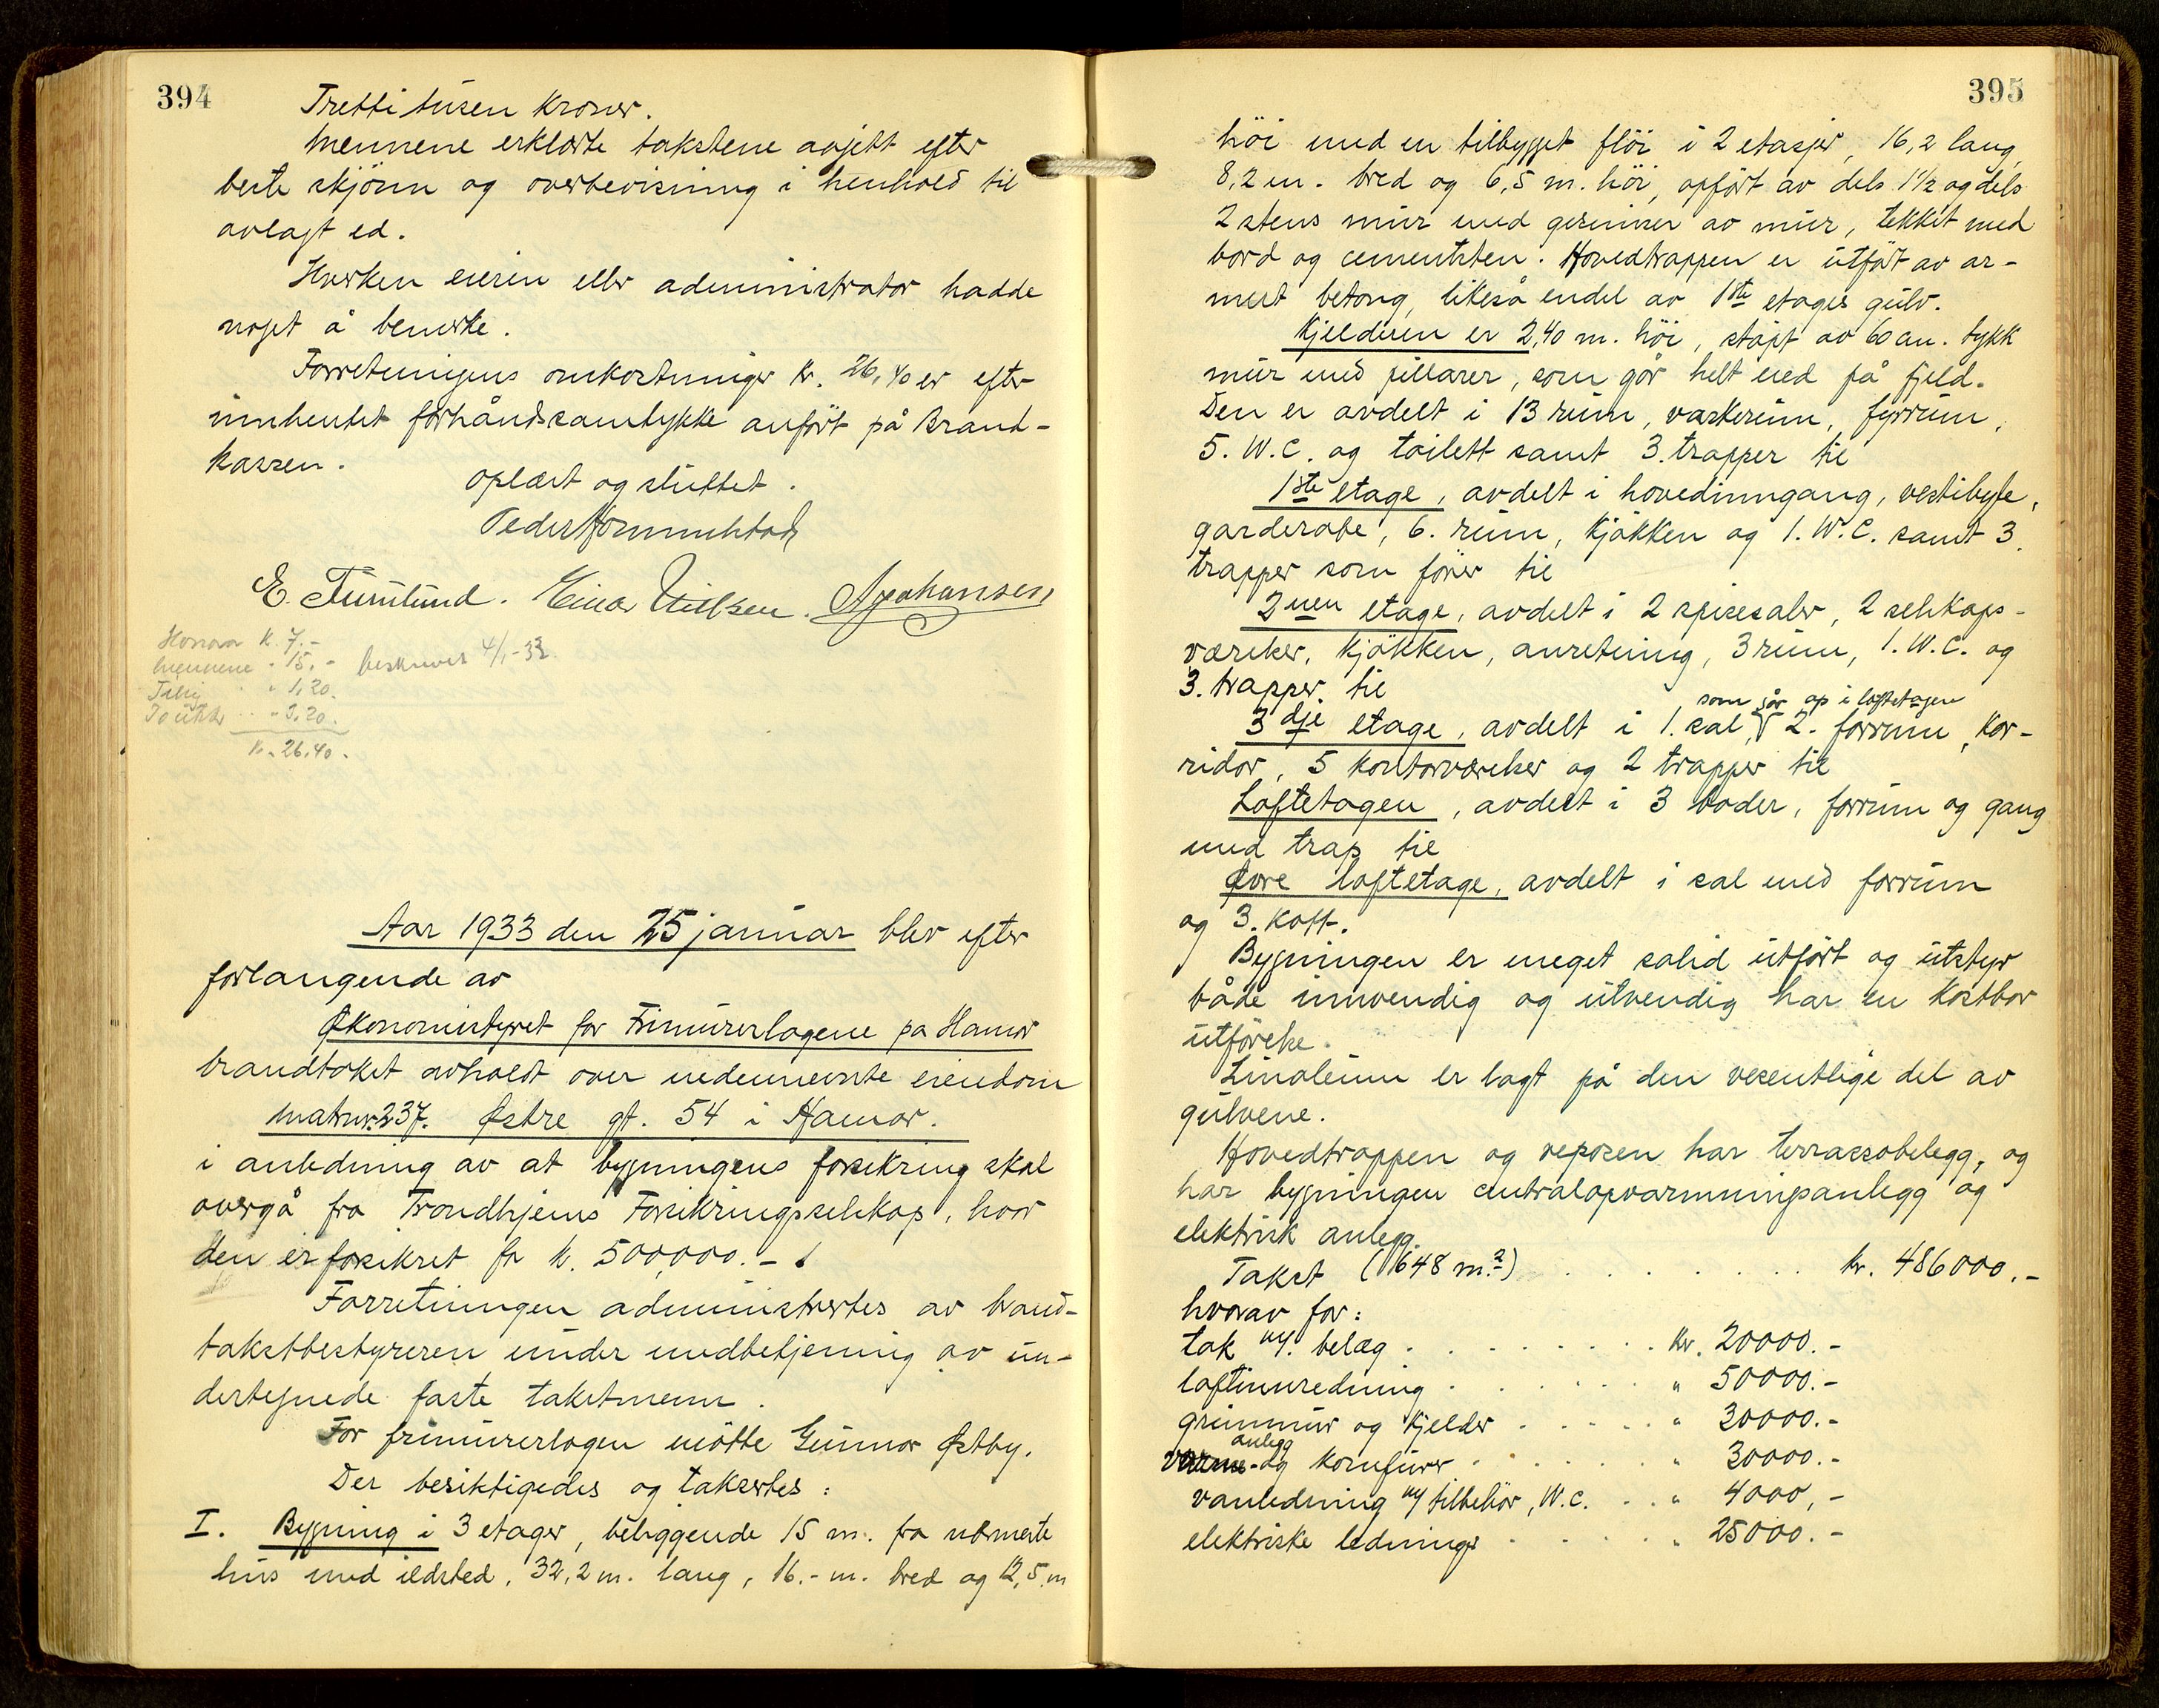 394
Tretti tusen kroner.
Mennene erklærte takstene avgitt efter
beste skjönn og overbevisning i henhold til
avlagt ed.
Hverken eieren eller administrator hadde
noget å bemerke.
Forretningens omkostninger kr. 26,40 er efter
innhentet forhåndssamtykke anført på Brand-
kassen.
Oplæst og sluttet.
E. Furulund. Einar Nielsen. A Johansen
Honorar K. 7.-
Mennene - 15.- beskrevet 4/1-33.
" 1,20.
" 3,20.
Kr. 26,40.
Aar 1933 den 25 januar blev efter
forlangende av
Økonomistyret for Frimurerlogene på Hamar
brandtakst avholdt over nedennevnte eiendom
Matrnr. 237. Østre gt. 54 i Hamar.
i anledning av at bygningens forsikring skal
overgå fra Trondhjems Forsikringsselskap, hvor
den er forsikret for k. 500,000.-
Forretningen administrertes av brand-
takstbestyreren under medbetjening av un-
dertegnede faste takstmenn.
For frimurerlogen møtte Gunnar Østby.
Der besiktigedes og taksertes:
I. Bygning i 3 etager, beliggende 15 m. fra nærmeste
hus med ildsted, 32,2 m. lang, 16.- m. bred og 12,5 m
395
höi med en tilbygget flöi i 2 etasjer, 16,2 lang
8,2 m. bred og 6,5 m. höi, opfört av dels 1½ og dels
2 stens mur med gesimser av mur, tekket med
bord og cementsten. Hovedtrappen er utfört av ar-
mert betong, likeså endel av 1ste etages gulv.
Kjelderen er 2,40 m. höi, støpt av 60 cm. tykk
mur med pillarer, som går helt ned på fjeld.
Den er avdelt i 13 rum, vaskerum, fyrrum,
5. W.C. og toilett samt 3. trapper til
1ste etage, avdelt i hovedinngang, vestibyle,
garderobe, 6. rum, kjøkken og 1. W.C. samt 3.
trapper som fører til
2nen etage, avdelt i 2 spisesaler, 2 selskaps-
værelser, kjökken, anretning, 3 rum, 1. W.C. og
3. trapper til
som går op i loftetagen
3dje etage, avdelt i 1. sal, 2. forrum, kor-
ridor, 5 kontorværelser og 2 trapper til
Loftetagen, avdelt i 3 boder, forrum og gang
med trap til
Øvre loftetage, avdelt i sal med forrum
og 3. kott.
Bygningen er meget solid utfört og utstyr
både innvendig og utvendig har en kostbar
utförelse.
Linoleum er lagt på den vesentlige del av
gulvene.
Hovedtrappen og reposen har terrassobelegg, og
har bygningen centralopvarmningsanlegg og
elektrisk anlegg.
Takst (648 m.2) . . . . . . . kr. 486000.-
hvorav for:
tak m/. belæg . . . . . . . . kr. 20000.-
loftinnredning . . . . . . " 50000.-
grunnmur og kjelder . . . . . " 30000.-
anlegg
varme- og komfurer . . . . . . " 30000.-
vanledning m/ tilbehör, W.C. . . " 4000,-
elektriske ledninger . . . . . " 25000.-